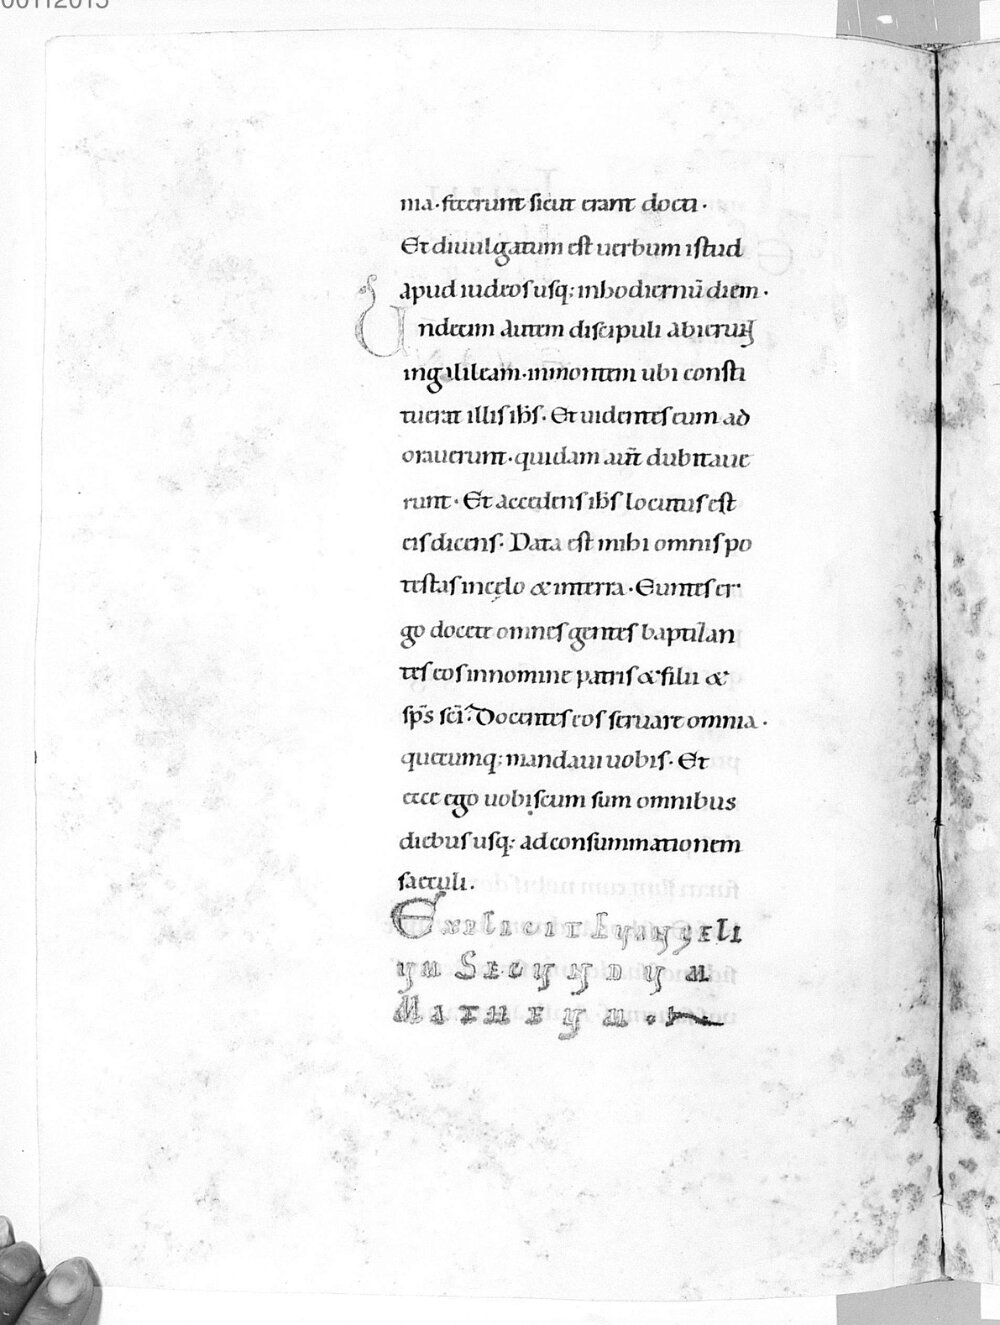 00112015
ma · fecerunt sicut erant docti ·
Et diuulgatum est uerbum istud
apud iudeos usq; in hodiernū diem ·
Undecim autem discipuli abierunt
in galileam · in montem ubi consti
tuerat illis ihs̄ · Et uidentes eum ad
orauerunt · quidam aūt dubitaue
runt · Et accedens ihs̄ locutus est
eis dicens · Data est mihi omnis po
testas in cęlo & in terra · Euntes er
go docete omnes gentes baptizan
tes eos in nomine patris & filii &
sp̄s sc̄i · Docentes eos seruare omnia ·
quecumq; mandaui uobis · Et
ecce ego uobiscum sum omnibus
diebus usq; ad consummationem
saeculi ·
Explicit Euangeli
um Secundum
Matheum ·